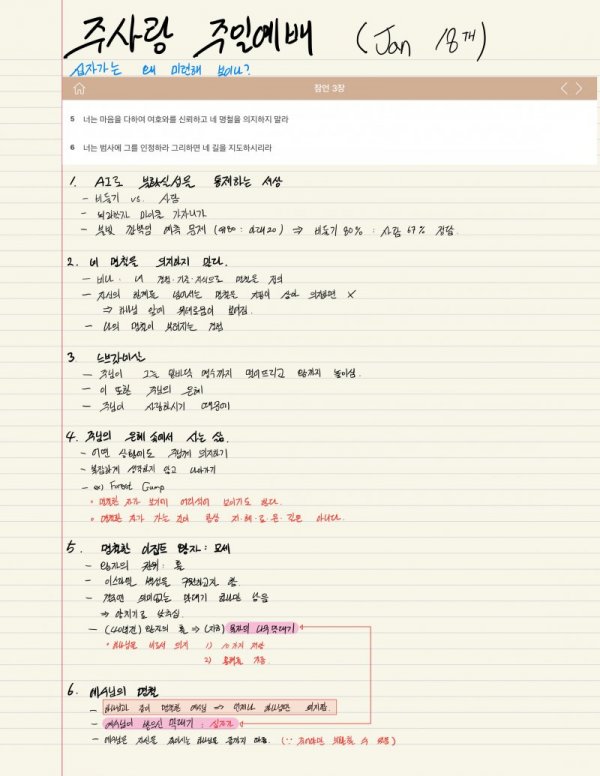 주사랑 주일예배 (Jan 18개)
십자가는 왜 미련해 보이나?
잠언 3장
5 너는 마음을 다하여 여호와를 신뢰하고 네 명철을 의지하지 말라
6 너는 범사에 그를 인정하라 그리하면 네 길을 지도하시리라
1. AI로 불확실성을 통제하는 세상
- 비둘기 vs. 사람
- 뭐라든지 마이클 가자니가
- 불빛 깜빡임 예측 문제 (예80 : 아래20) ⇒ 비둘기 80% : 사람 67% 정답.
2. 네 명철을 의지하지 말라.
- 비나 : 내 경험·기준·지식으로 명철을 정의
- 자신의 한계를 넘어서는 명철은
⇒ 하나님 앞에
- 나의 명철이 부러지는 경험
3 느브갓네살
- 주님이 그를 밑바닥
- 이 또한 주님의 은혜
- 주님이 사랑하시기 때문에
4. 주님의 은혜 속에서 사는 삶.
- 어떤 상황에도 주님께 의지하기
- 복잡하게 생각하지 않고 나아가기
- ex) Forest Gump
• 명철한 자가 보기에 어리석어 보이기도 한다.
• 명철한 자가 가는 길이 항상 지·혜·로·운·길은 아니다.
5. 명철한 이집트 왕자 : 모세
- 왕자의 권위 : 홀
- 이스라엘 백성을 구원하고자 함.
- 결국엔 의미없는 막대기 하나만 남음
⇒ 양치기로 낮추심
- (40년전) 왕자의 홀 ⇒ (지금) 목자의 나무막대기
• 하나님을 비로서 의지 1) 10가지 재앙
2) 홍해를 가름
6. 예수님의 명철
- 하나님과 같이 명철한 예수님 → 언제나 하나님만 의지함.
- 예수님이 받으신 막대기 : 십자가
- 예수님은 자신을 죽이시는 하나님을 끝까지 따름. (∵ 죽어야만 부활할 수 있음)